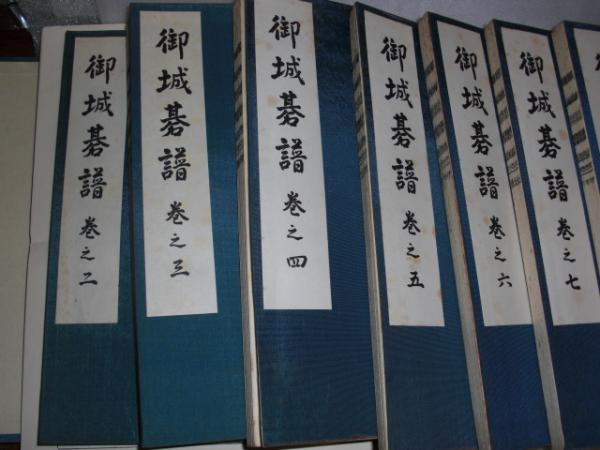 御城碁譜 巻之二
御城碁譜 巻之三
御城碁譜 巻之四
御城碁譜 巻之五
御城碁譜 巻之六
御城碁譜 巻之七